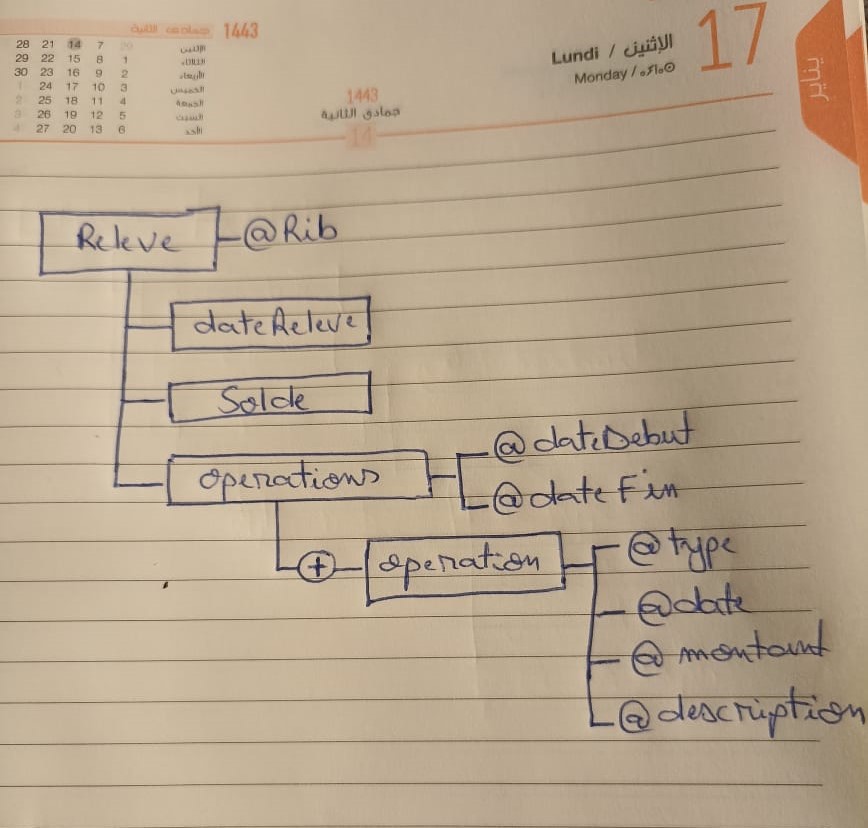 جمادى الثانية 1443
28 21 14 7 الإثنين
29 22 15 8 1 الثلاثاء
30 23 16 9 2 الأربعاء
1 24 17 10 3 الخميس
2 25 18 11 4 الجمعة
3 26 19 12 5 السبت
4 27 20 13 6 الأحد
1443
جمادى الثانية
14
Lundi / الإثنين
Monday / ⴰⵢⵏⴰⵙ
17
يناير
Releve @Rib
dateReleve
Solde
operations @dateDebut
@dateFin
+ operation @type
@date
@montant
@description